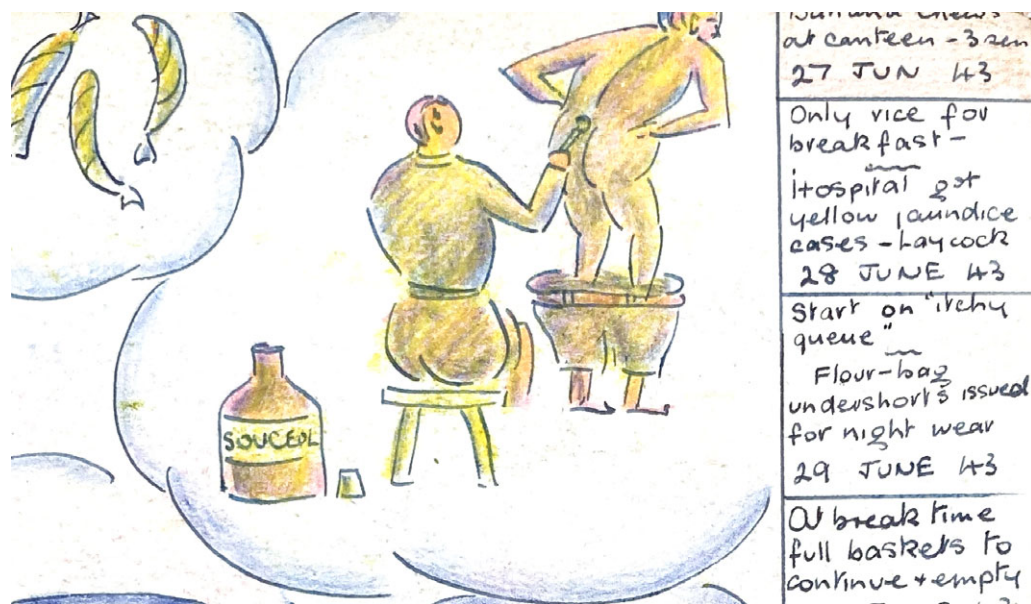 SOUCEOL
Banana chews
at canteen - 3 sen
27 JUN 43
Only rice for
breakfast -
Hospital got
yellow jaundice
cases - Laycock
28 JUNE 43
Start on "itchy
queue"
Flour-bag
undershorts issued
for night wear
29 JUNE 43
At break time
full baskets to
continue + empty